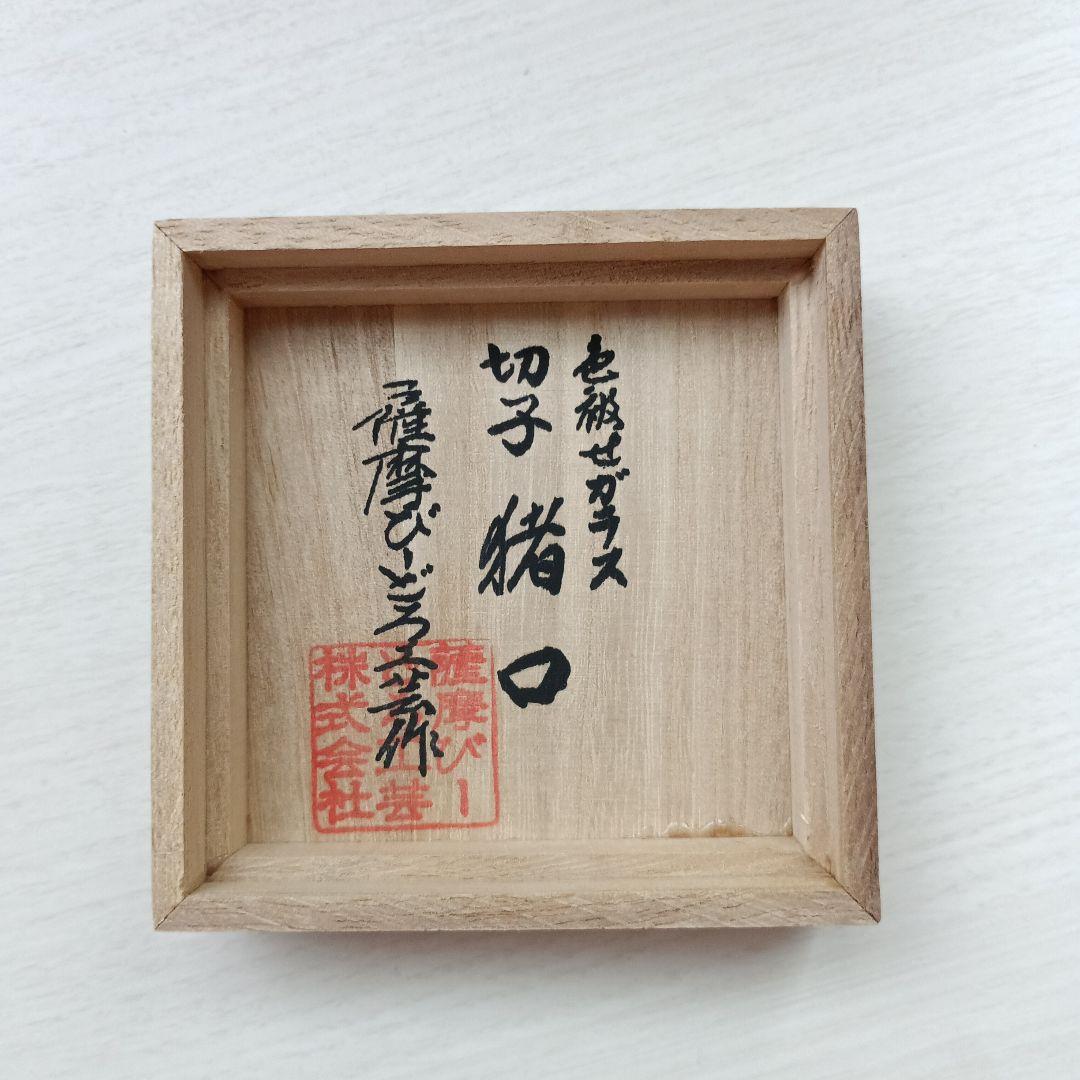 色被せガラス
切子 猪口
薩摩びーどろ工芸作
薩摩びー
どろ工芸
株式会社